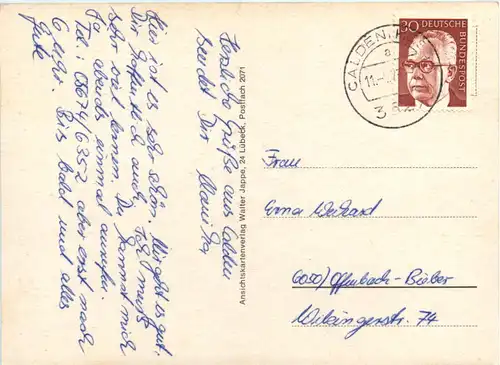 Herzliche Grüße aus Calden
sendet Dir
Hier ist es sehr schön. Mir geht es gut.
Dir hoffentlich auch. Ich muß
sehr viel lernen. Du kannst mich
ja abends einmal anrufen.
Tel.: 05674/6352 aber erst nach
6 Uhr. Bis bald und alles
Gute
Ansichtskartenverlag Walter Jappe, 24 Lübeck, Postfach 2071
CALDEN
a
30
DEUTSCHE
BUNDESPOST
Frau
Erna
6050/Offenbach-Bieber
Wikingerstr. 74